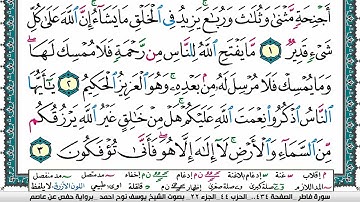 أَجْنِحَةٍ مَّثْنَىٰ وَثُلَٰثَ وَرُبَٰعَ ۚ يَزِيدُ فِى ٱلْخَلْقِ مَا يَشَآءُ ۚ إِنَّ ٱللَّهَ عَلَىٰ كُلِّ
شَىْءٍ قَدِيرٌ ١ مَّا يَفْتَحِ ٱللَّهُ لِلنَّاسِ مِن رَّحْمَةٍ فَلَا مُمْسِكَ لَهَا ۖ
وَمَا يُمْسِكْ فَلَا مُرْسِلَ لَهُۥ مِنۢ بَعْدِهِۦ ۚ وَهُوَ ٱلْعَزِيزُ ٱلْحَكِيمُ ٢ يَٰٓأَيُّهَا
ٱلنَّاسُ ٱذْكُرُوا۟ نِعْمَتَ ٱللَّهِ عَلَيْكُمْ ۚ هَلْ مِنْ خَٰلِقٍ غَيْرُ ٱللَّهِ يَرْزُقُكُم
مِّنَ ٱلسَّمَآءِ وَٱلْأَرْضِ ۚ لَآ إِلَٰهَ إِلَّا هُوَ ۖ فَأَنَّىٰ تُؤْفَكُونَ ٣
سورة فاطر الصفحة ٤٣٤ الحزب ٤٤ الجزء ٢٢ بصوت الشيخ يوسف نوح أحمد برواية حفص عن عاصم